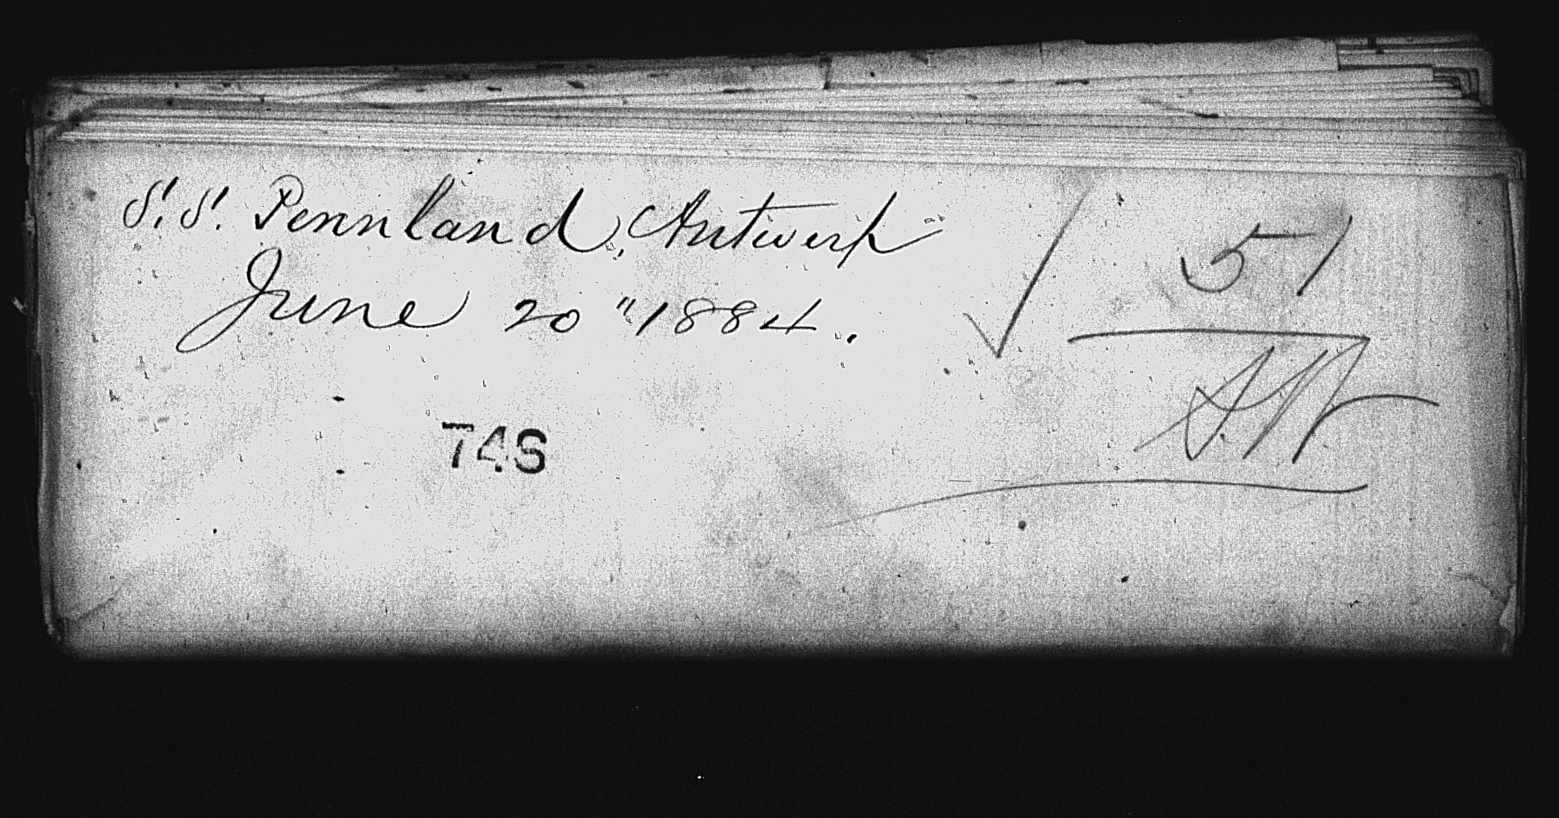 S.S. Pennland, Antwerp
June 20" 1884.
51
74S